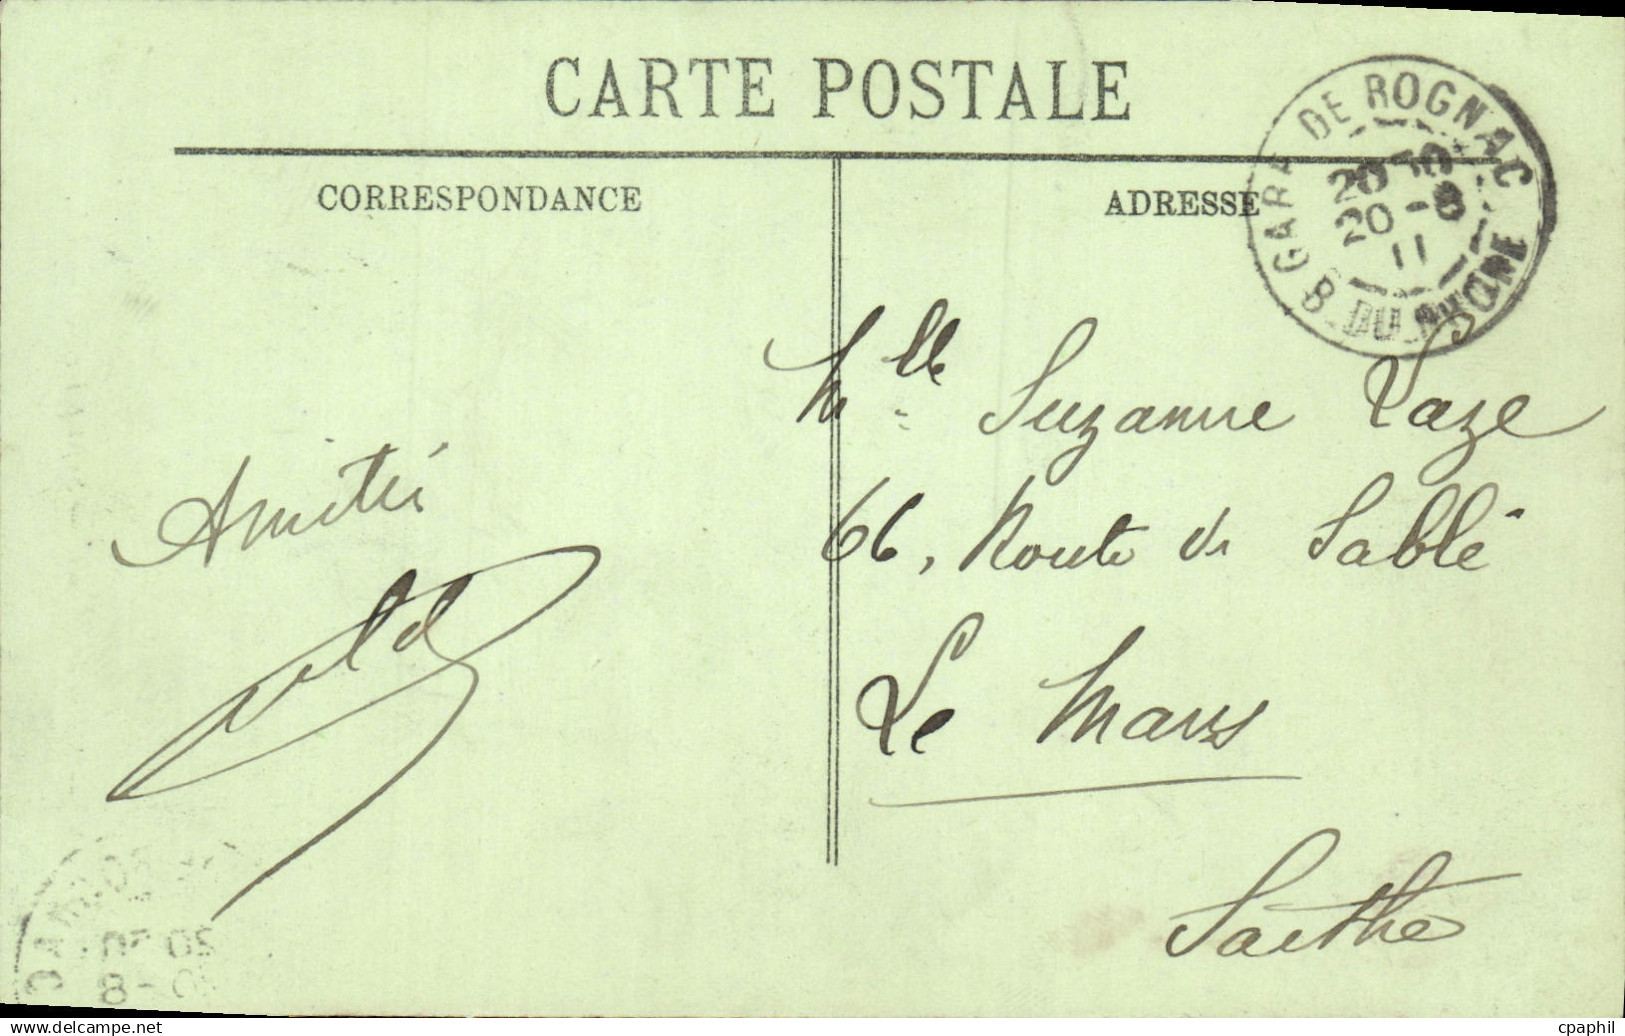 CARTE POSTALE
CORRESPONDANCE
ADRESSE
GARE DE ROGNAC
20 30
20 -8
11
B. DU RHONE
Mlle Suzanne Laze
66, Route de Sablé
Le Mans
Sarthe
Amitié
cpaphil